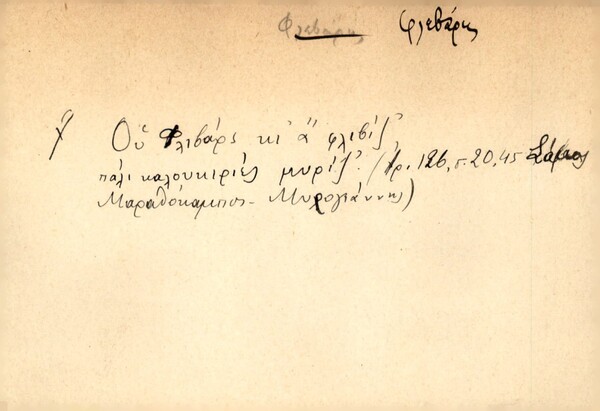 Φλεβάρης Φλεβάρης
Οὑ Φλιβάρς κι ἀ φλιβίζ'
πάλι καλουκιριές μυρίζ'. (Ἀρ. 126, σ. 20, 45 Σάμος
Μαραθόκαμπος - Μυρογιάννης)